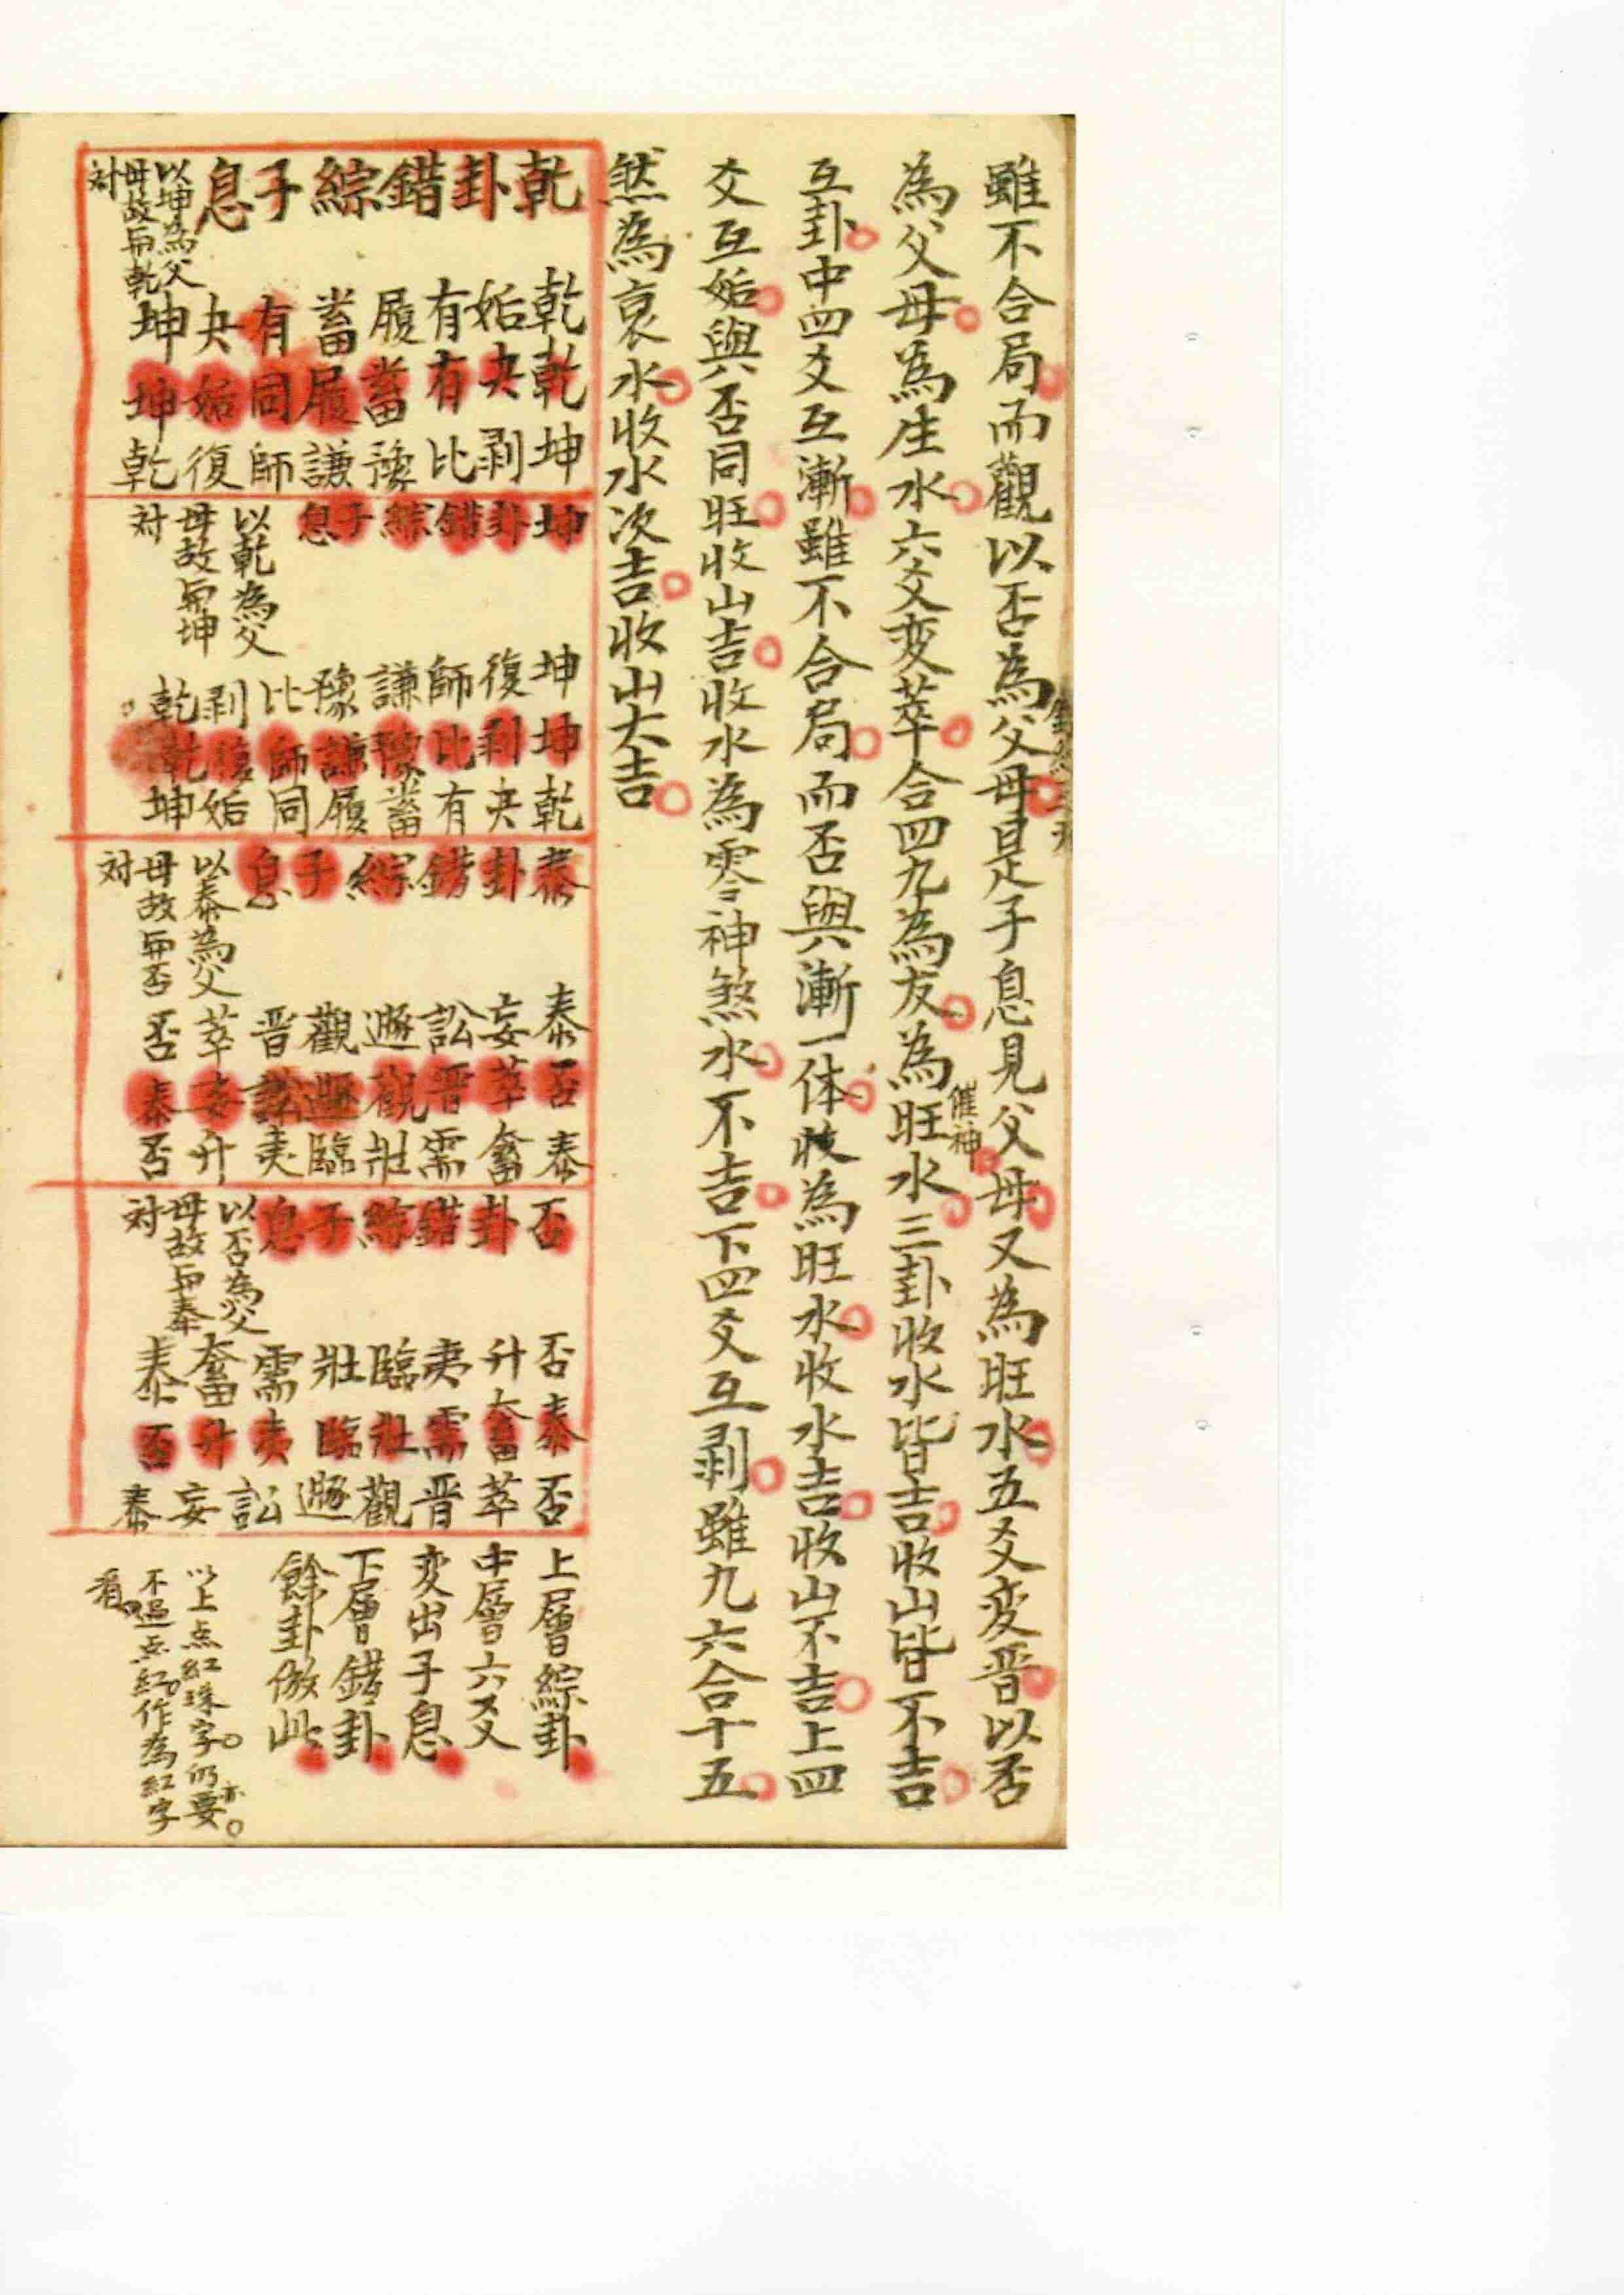 雖不合局而觀以否為父母是子息見父母又為旺水五爻变晋以否
為父母為生水六爻变萃合四九為友為旺水三卦收水皆吉收山皆不吉
催神
互卦中四爻互漸雖不合局而否與漸一体收為旺水收水吉收山不吉上四
爻互姤與否同旺收山吉收水為零神煞水不吉下四爻互剥雖九六合十五
然為衰水收水次吉收山大吉
乾卦錯綜子息
以坤為父
母故與乾
対
乾姤有履畜有夬坤
乾夬有畜履同姤坤
坤剥比豫謙師復乾
坤卦錯綜子息
以乾為父
母故與坤
対
坤復師謙豫比剥乾
坤剥比豫謙師復乾
乾夬有畜履同姤坤
泰卦錯綜子息
以泰為父
母故與否
対
泰妄訟遯觀晋萃否
否萃晋觀遯訟妄泰
泰畜需壯臨夷升否
否卦錯綜子息
以否為父
母故與泰
対
否升夷臨壯需畜泰
泰畜需壯臨夷升否
否萃晋觀遯訟妄泰
上層綜卦
中層六爻
変出子息
下層錯卦
餘卦倣此
以上点紅珠字仍要
不過点紅作為紅字
看